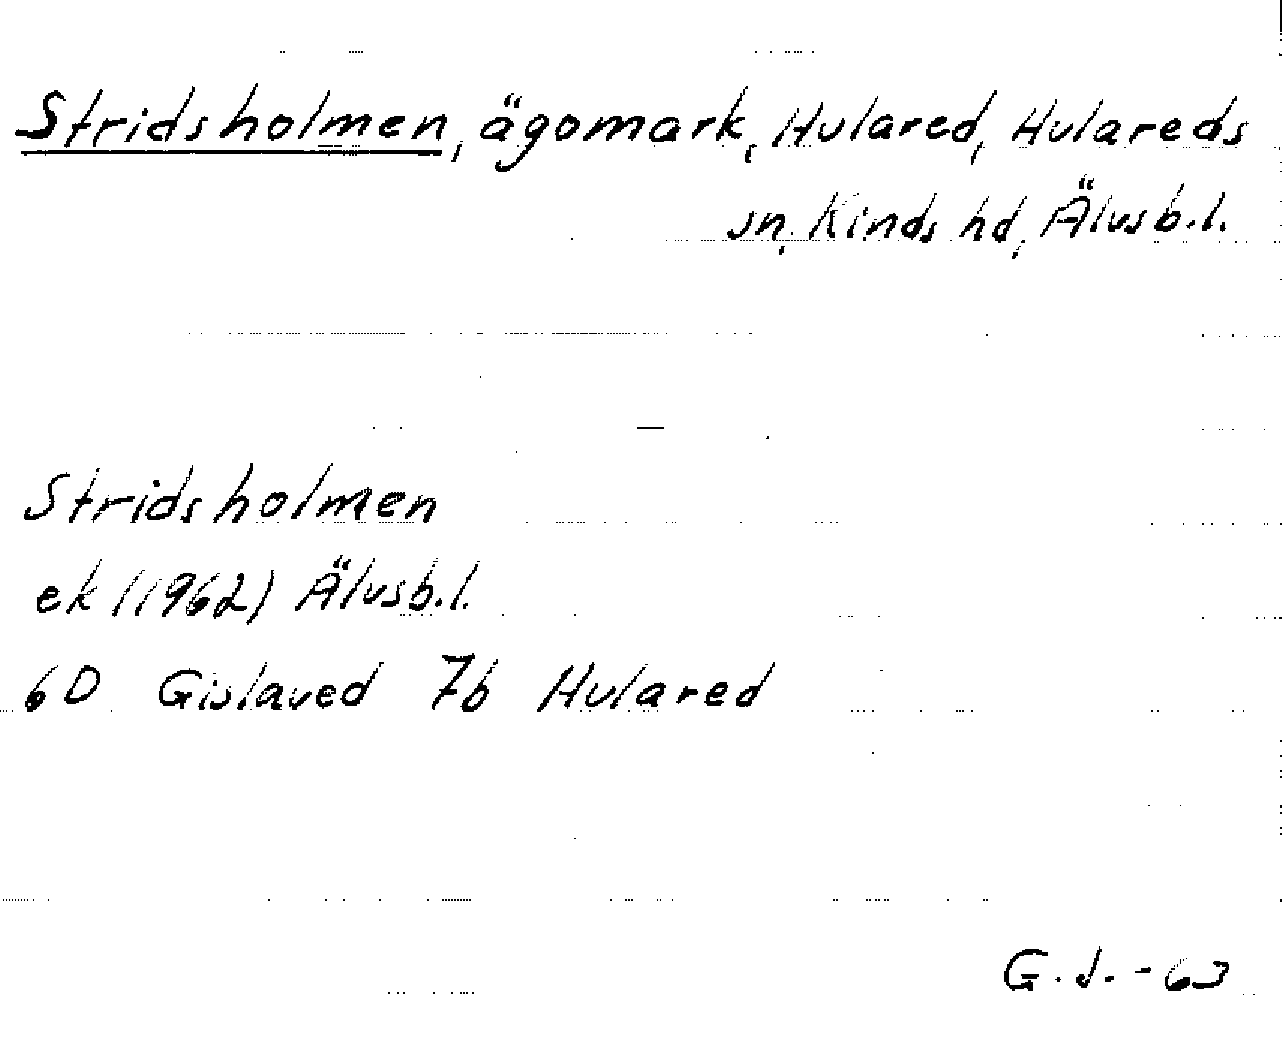 Stridsholmen, ägomark, Hulared, Hulareds
sn, Kinds hd, Älvsb.l.
Stridsholmen
ek (1962) Älvsb.l.
6D Gislaved 7b Hulared
G.J.-63